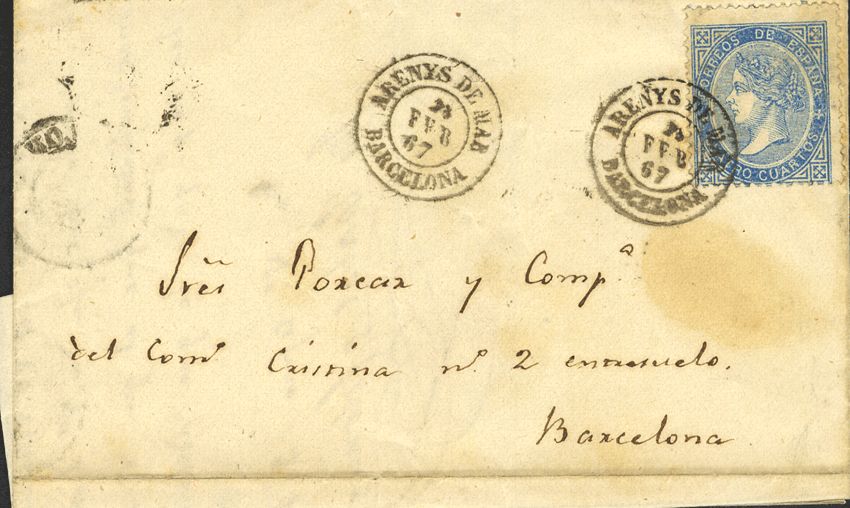 CORREOS DE ESPAÑA
CUATRO CUARTOS
ARENYS DE MAR
FEB
67
BARCELONA
ARENYS DE MAR
FEB
67
BARCELONA
Sres Porcar y Compª
del Comº Cristina nº 2 entresuelo.
Barcelona